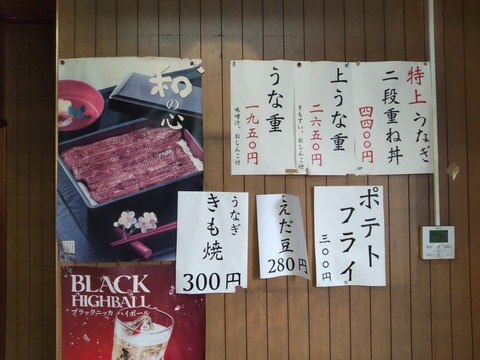 和の心
特上うなぎ
二段重ね丼
四四〇〇円
上うな重
二六五〇円
きもすい、おしんこ付
うな重
一九五〇円
味噌汁、おしんこ付
うなぎ
きも焼
300円
えだ豆
280円
ポテト
フライ
三〇〇円
BLACK
HIGHBALL
ブラックニッカ ハイボール